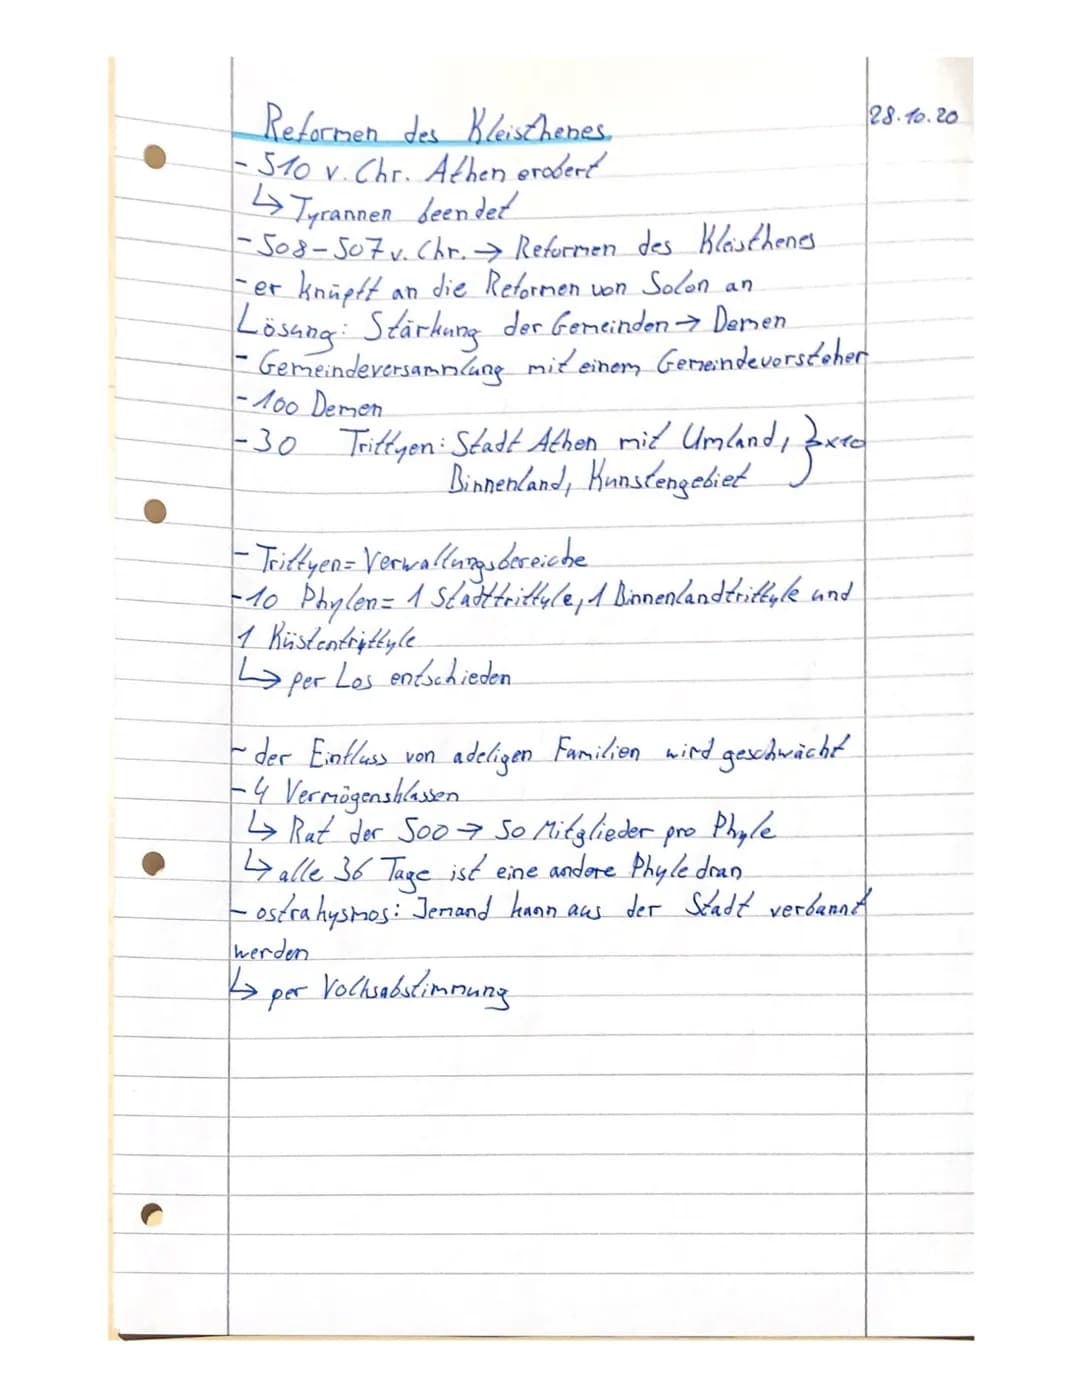 28.10.20
Reformen des Kleisthenes
- 510 v. Chr. Athen erobert
↳ Tyrannen beendet
- 508-507 v. Chr. → Reformen des Kleisthenes
- er knüpft an die Reformen von Solon an
Lösung: Stärkung der Gemeinden → Demen
- Gemeindeversammlung mit einem Gemeindevorsteher
- 100 Demen
- 30 Trittyen: Stadt Athen mit Umland, } x10
Binnenland, Kunstengebiet
- Trittyen = Verwaltungsbereiche
- 10 Phylen = 1 Stadttrittyle, 1 Binnenlandtrittyle und
1 Küstentrittyle
↳ per Los entschieden
- der Einfluss von adeligen Familien wird geschwächt
- 4 Vermögensklassen
↳ Rat der 500 → 50 Mitglieder pro Phyle
↳ alle 36 Tage ist eine andere Phyle dran
- ostrakysmos: Jemand kann aus der Stadt verbannt
werden
↳ per Volksabstimmung